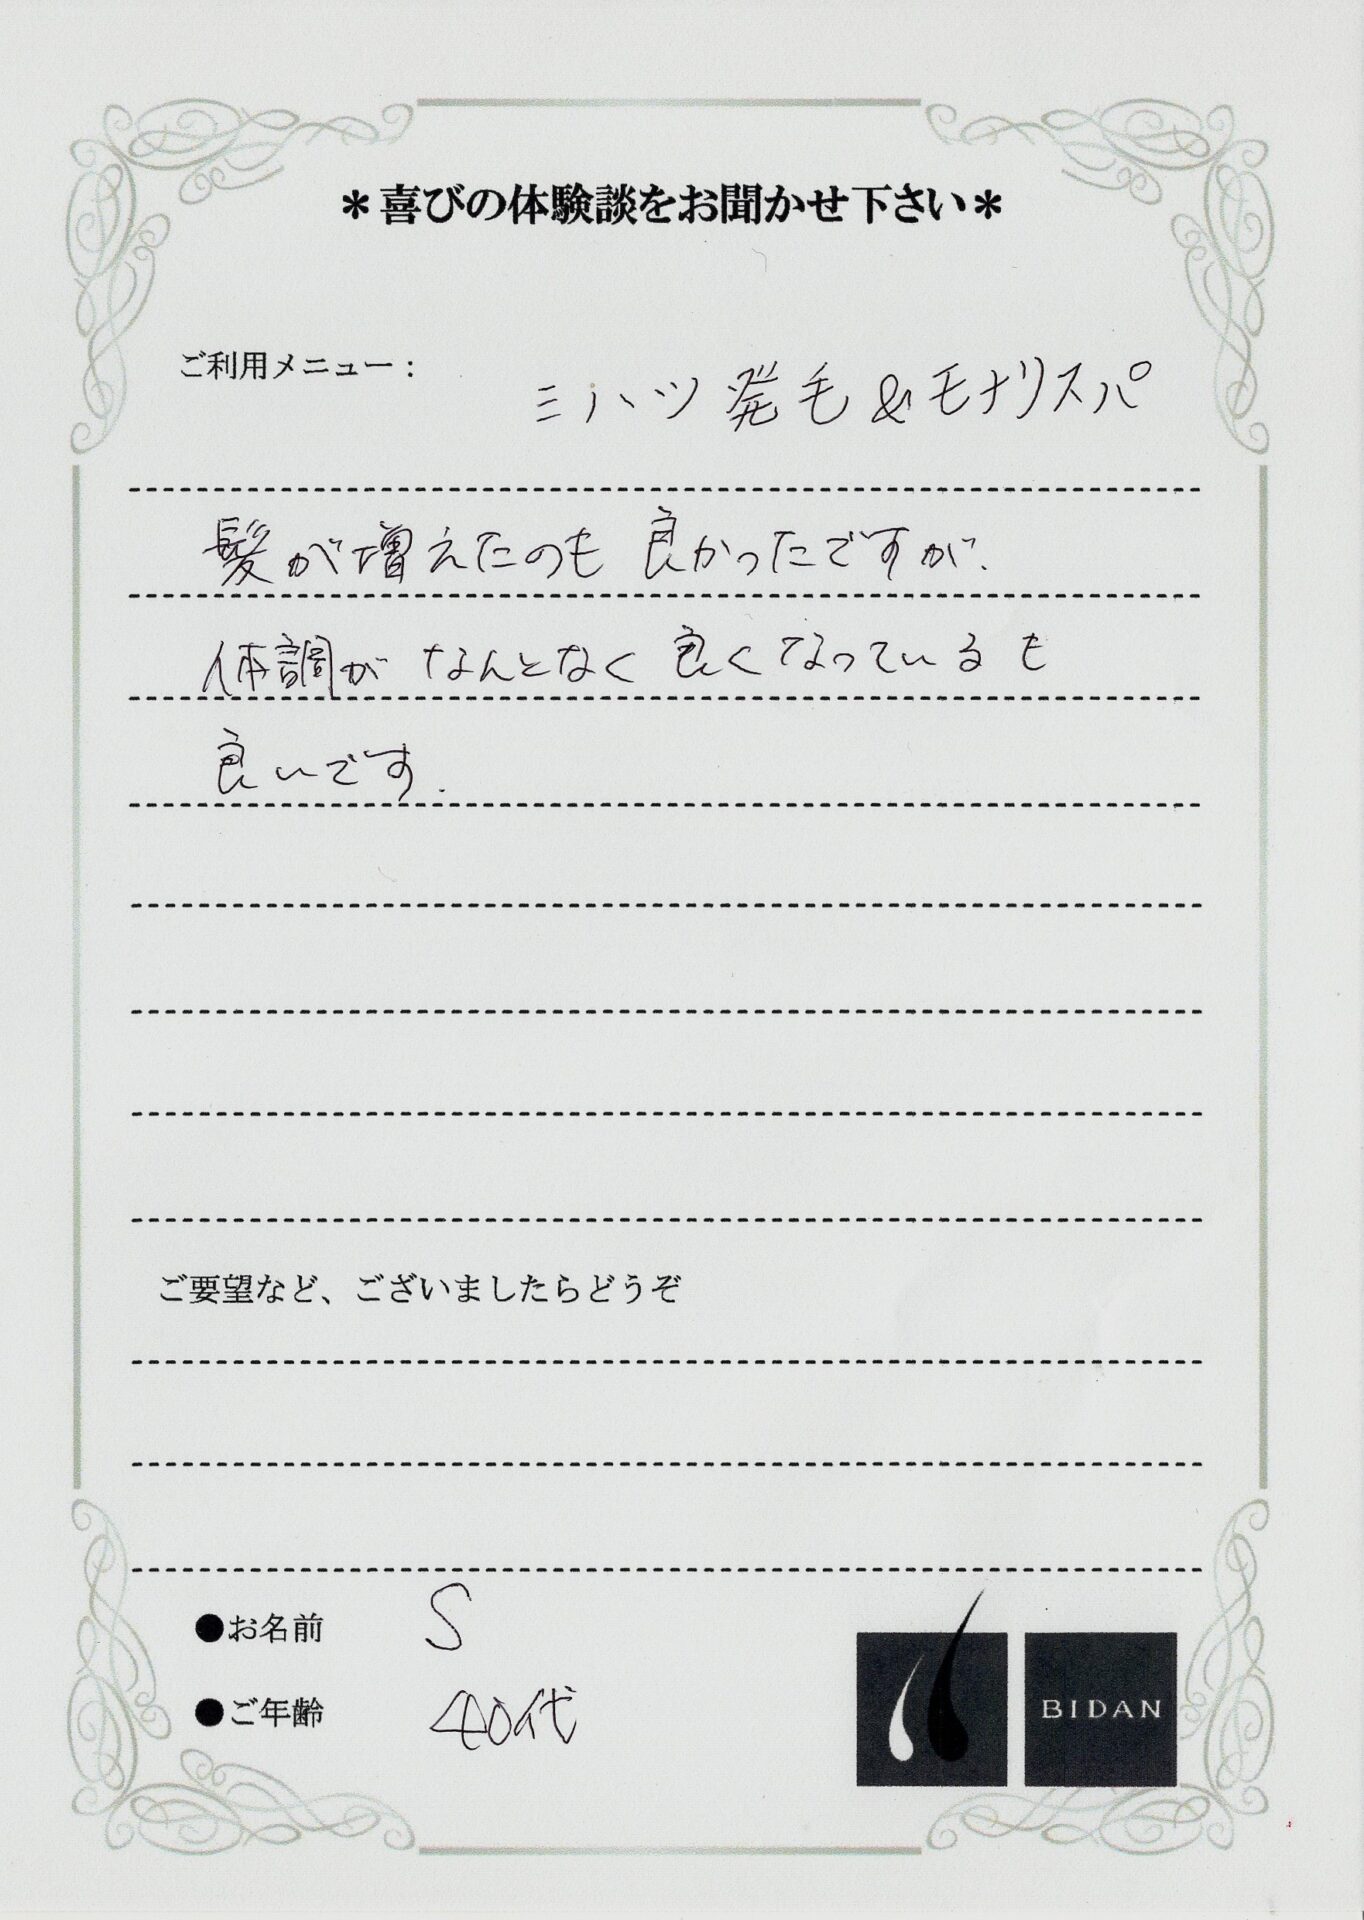 ＊喜びの体験談をお聞かせ下さい＊
ご利用メニュー：
ミハツ発毛&モナリスパ
髪が増えたのも 良かったですが、
体調が なんとなく 良くなっているも
良いです.
ご要望など、ございましたらどうぞ
●お名前 S
●ご年齢 40代
BIDAN